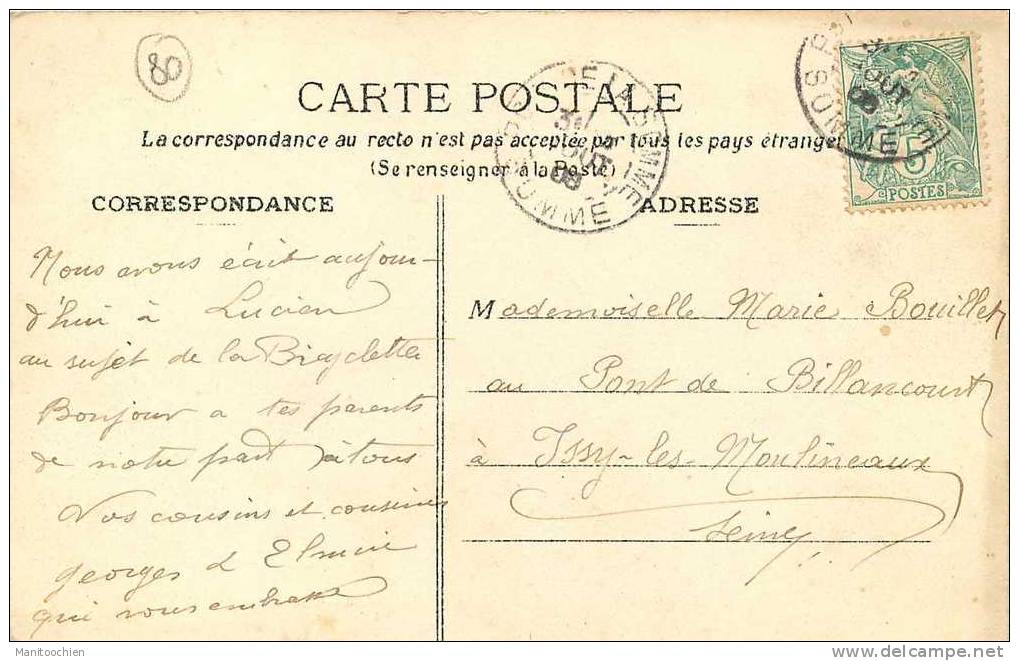 80
CARTE POSTALE
La correspondance au recto n'est pas acceptée par tous les pays étrangers
(Se renseigner à la Poste)
CORRESPONDANCE
Nous avons écrit aujour-
d'hui à Lucien
au sujet de la Bicyclette
Bonjour a tes parents
de notre part à tous
Vos cousins et cousines
Georges &
qui vous embrasse
ADRESSE
Mademoiselle Marie Bouillet
au Pont de Billancourt
à Issy-les-Moulineaux
Seine
SOMME
31
AOUT
08
SOMME
5
POSTES
Manitoochien
delcampe.net